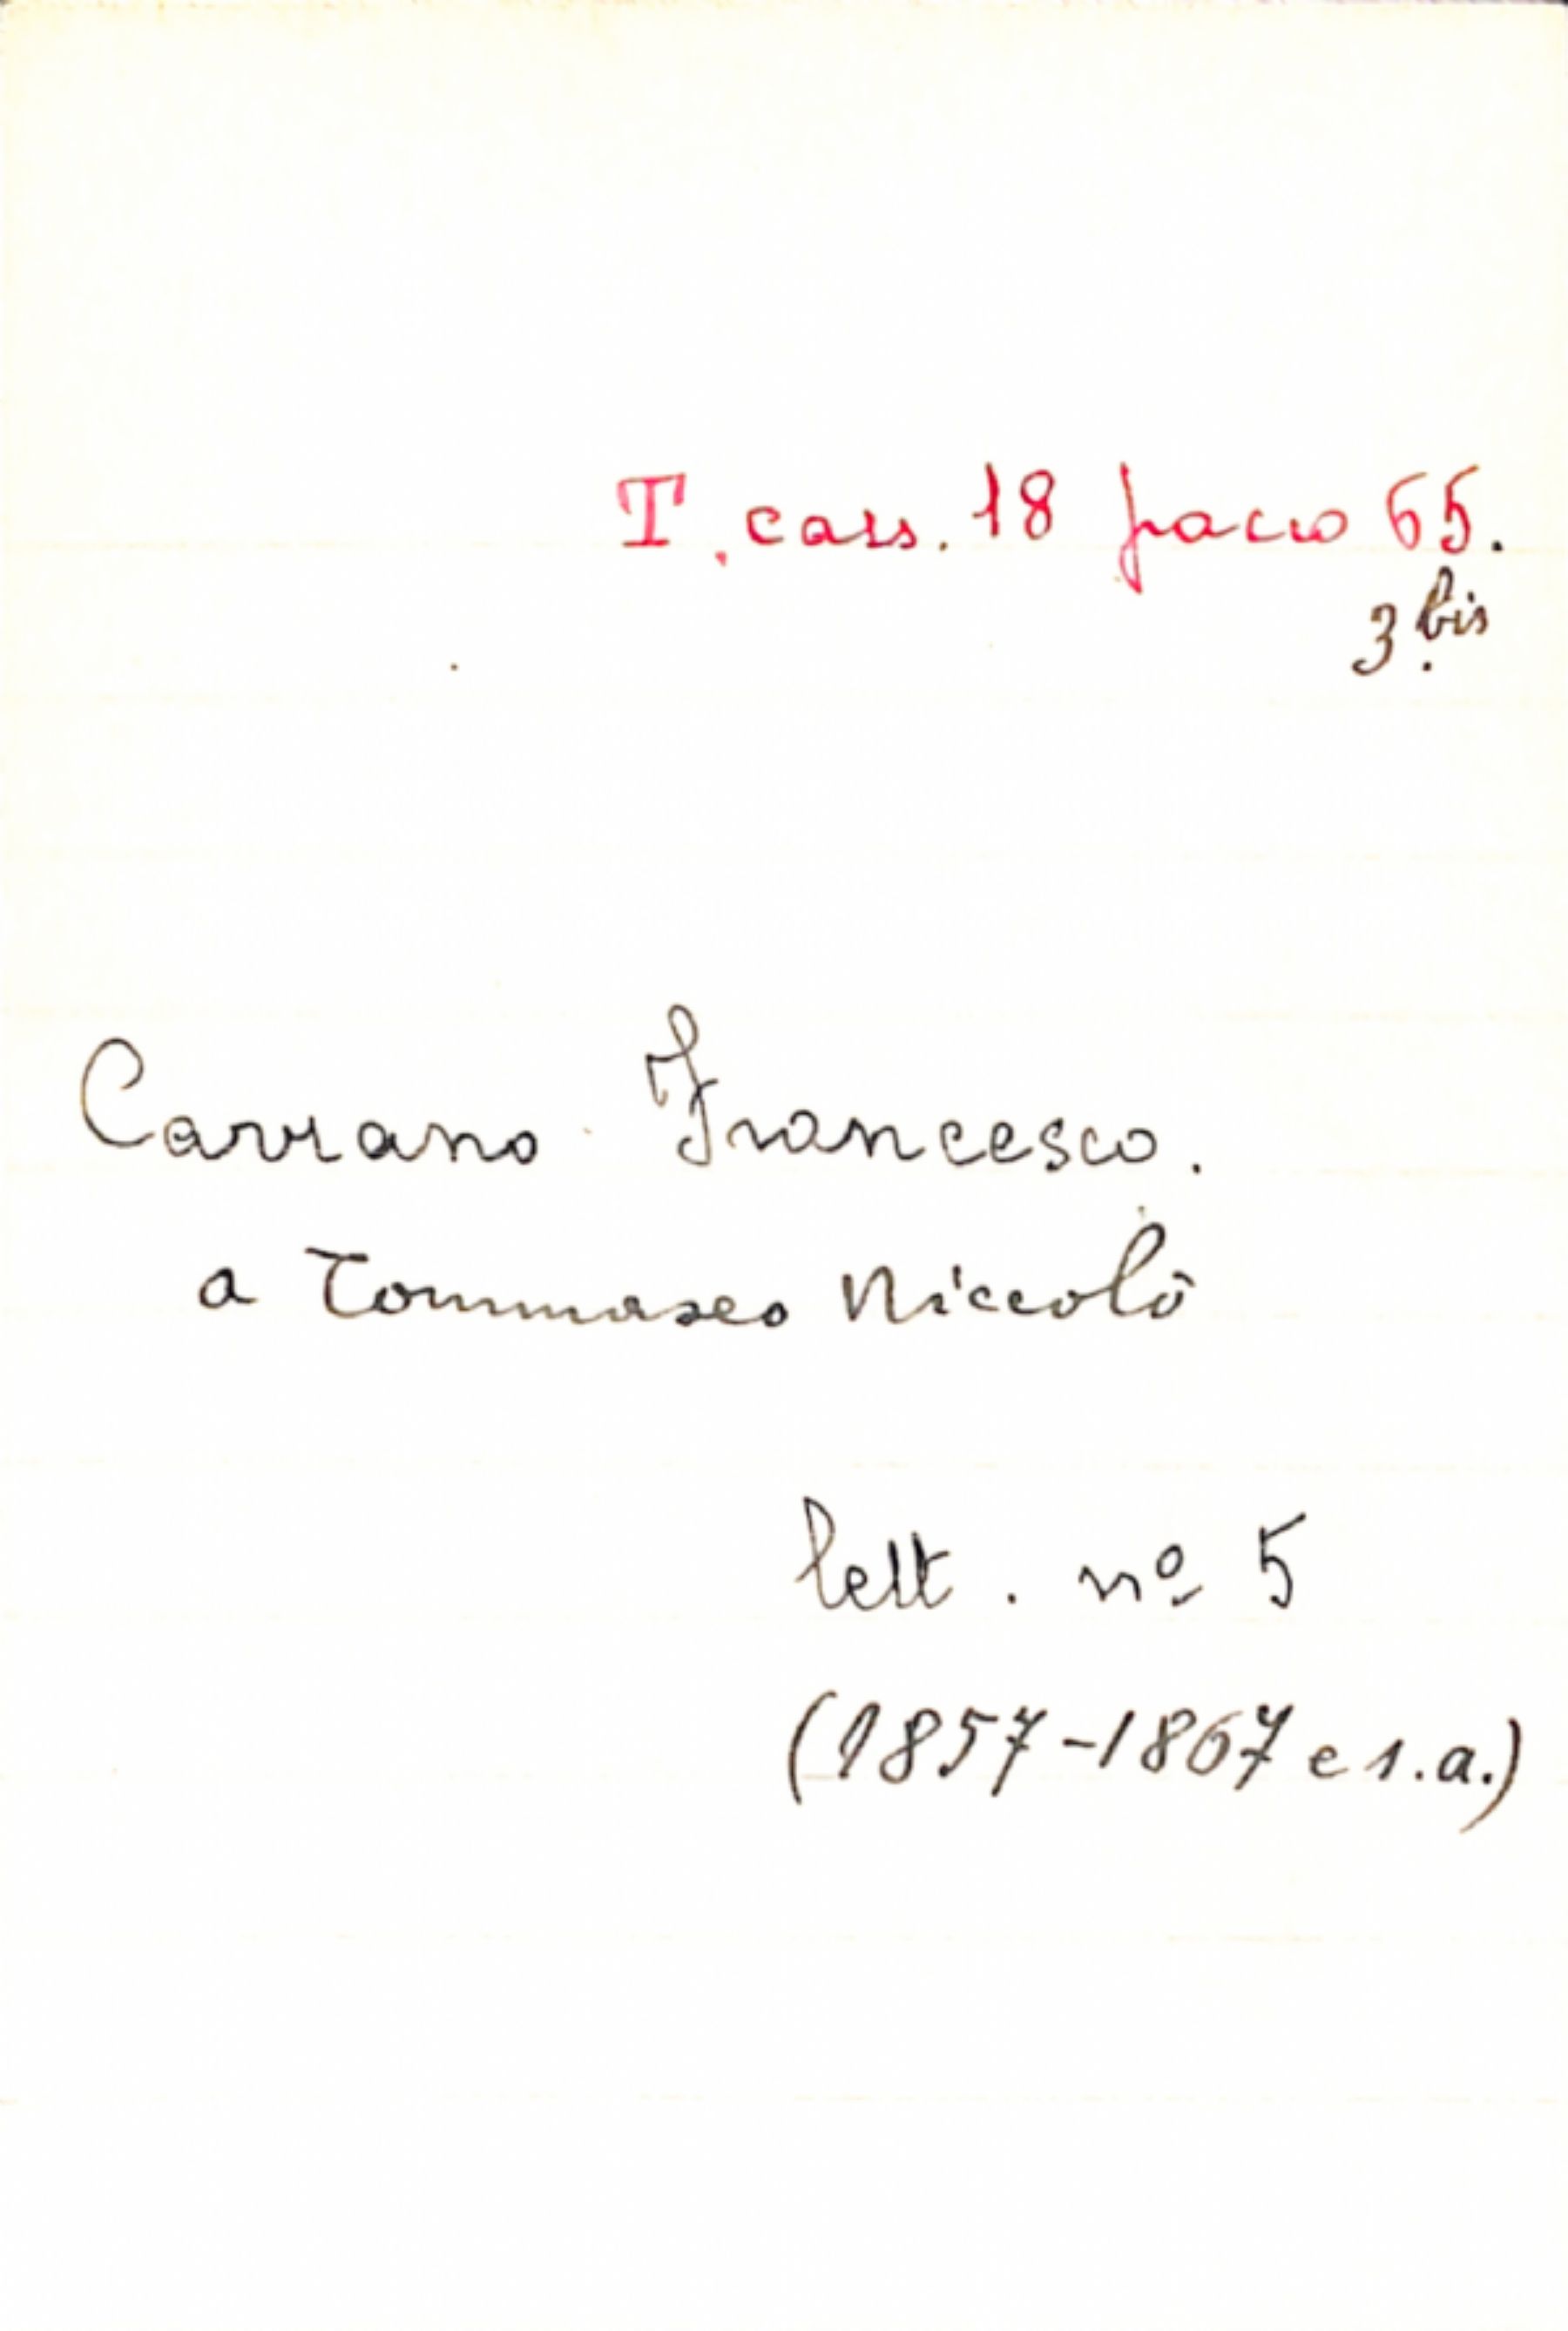 T. cass. 18 pacco 65.
3 bis
Carrano Francesco.
a Tommaseo Niccolò
lett. nº 5
(1857-1867 e s.a.)